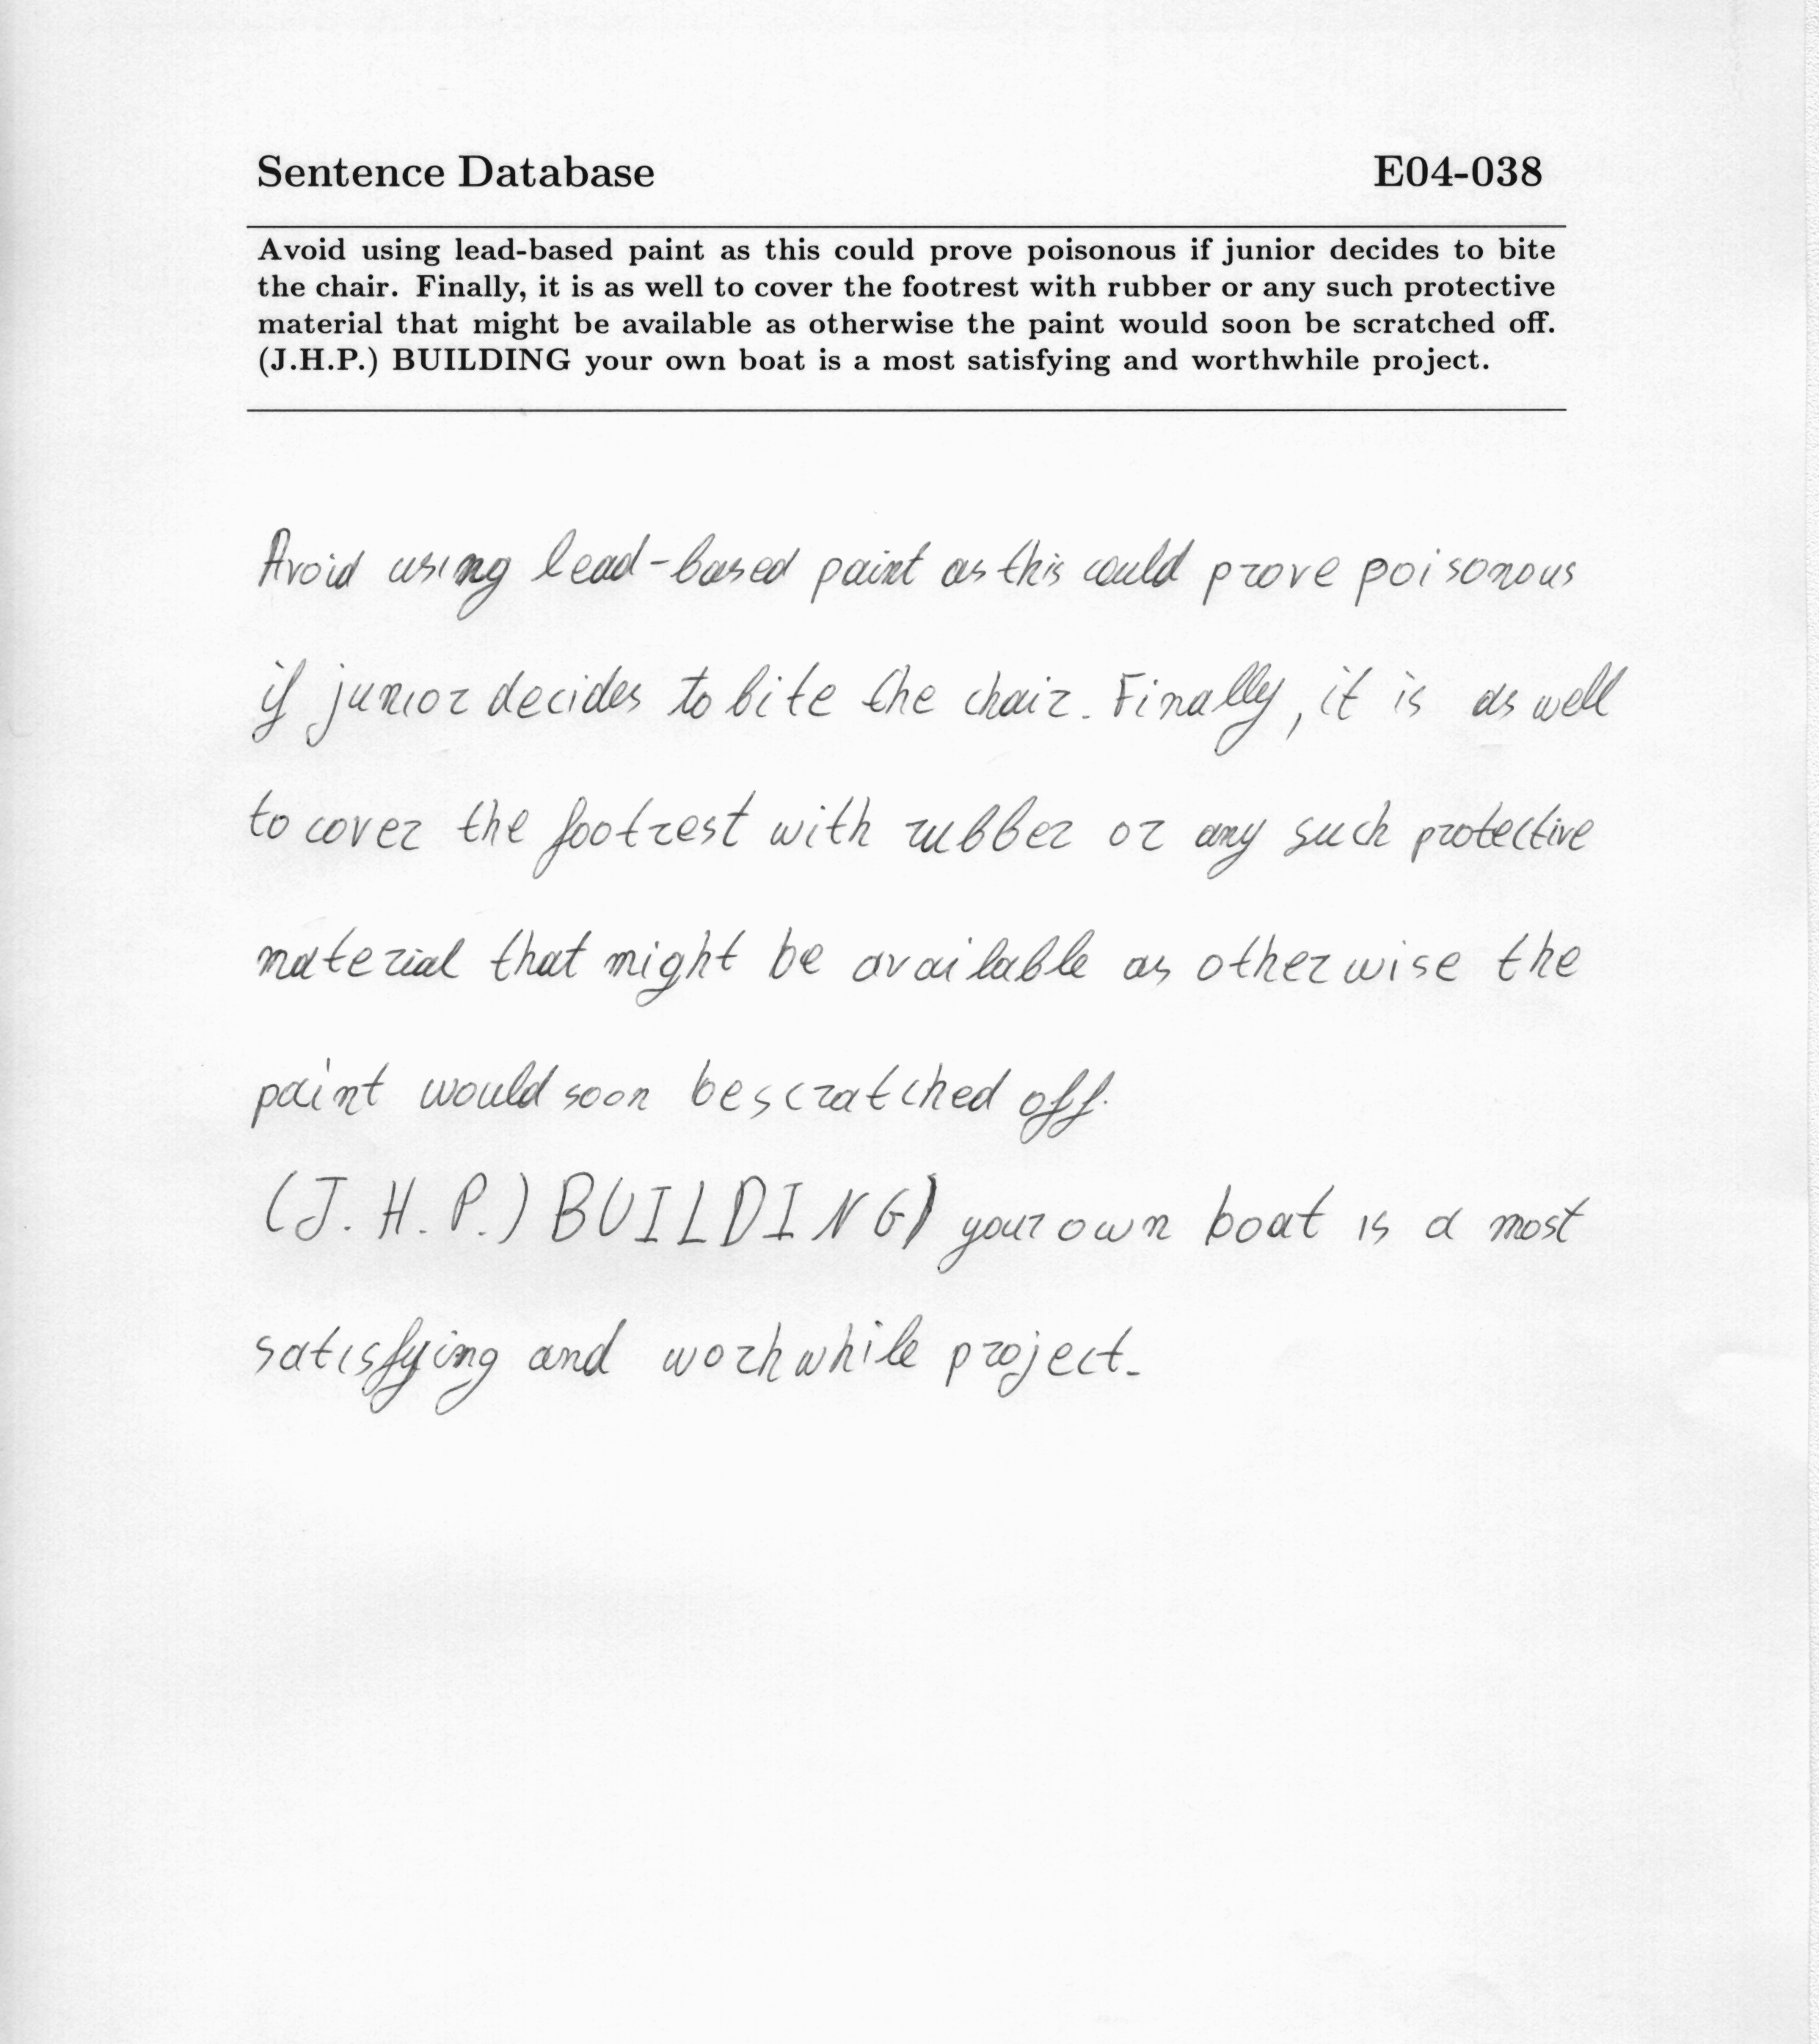 Sentence Database E04-038
Avoid using lead-based paint as this could prove poisonous if junior decides to bite
the chair. Finally, it is as well to cover the footrest with rubber or any such protective
material that might be available as otherwise the paint would soon be scratched off.
(J.H.P.) BUILDING your own boat is a most satisfying and worthwhile project.
Avoid using lead-based paint as this could prove poisonous
if junior decides to bite the chair. Finally, it is as well
to cover the footrest with rubber or any such protective
material that might be available as otherwise the
paint would soon be scratched off.
(J.H.P.) BUILDING) your own boat is a most
satisfying and worhwhile project.